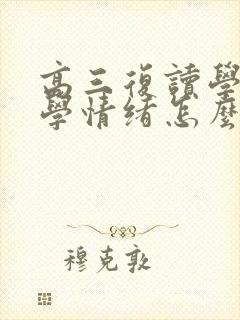 高三復讀學
學情绪怎麼
穆克敦